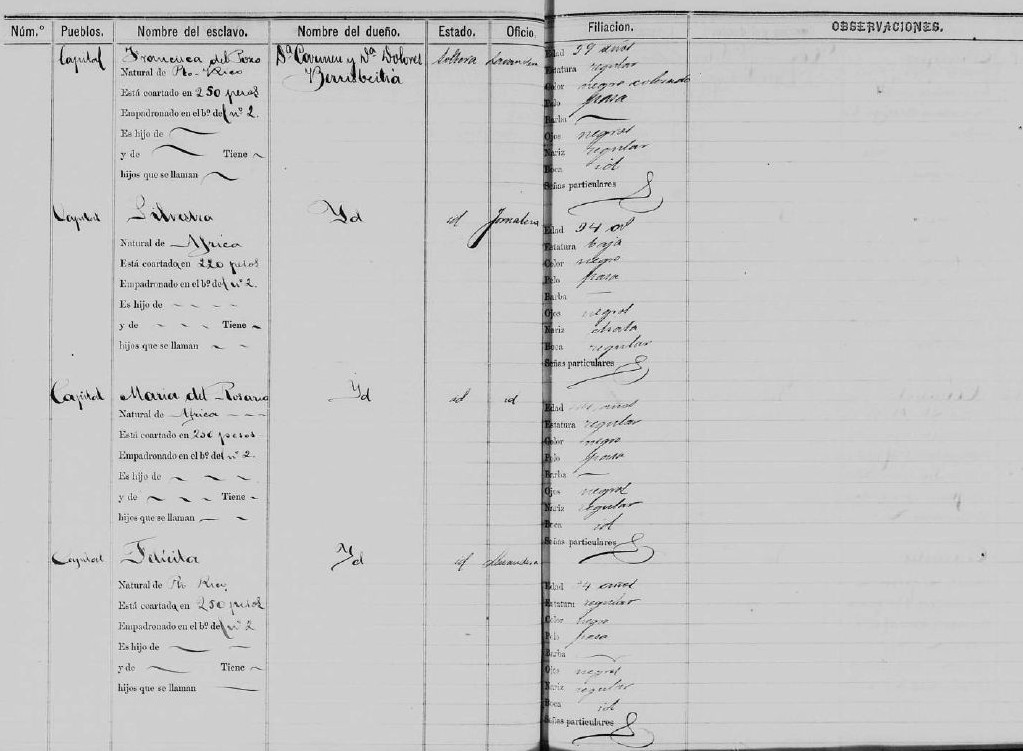 Núm.º Pueblos. Nombre del esclavo. Nombre del dueño. Estado. Oficio. Filiacion. OBSERVACIONES.
Capital Francisca del Pozo Dª Carmen y Dª Dolores Soltera Lavandera
Natural de Pto-Rico Berrisbeitia
Está coartado en 250 pesos
Empadronado en el bº de nº 2.
Es hijo de
y de Tiene
hijos que se llaman
Edad años
Estatura regular
Color negro
Pelo pasa
Barba —
Ojos negros
Nariz regular
Boca id
Señas particulares
Capital Silvestra Yd id Jornalera
Natural de Africa
Está coartada en 220 pesos
Empadronado en el bº de nº 2.
Es hijo de
y de Tiene
hijos que se llaman
Edad 94 años
Estatura baja
Color negro
Pelo pasa
Barba —
Ojos negros
Nariz chata
Boca regular
Señas particulares
Capital Maria del Rosario Yd id id
Natural de Africa
Está coartado en pesos
Empadronado en el bº de nº 2.
Es hijo de
y de Tiene
hijos que se llaman
Edad años
Estatura regular
Color negro
Pelo pasa
Barba —
Ojos negros
Nariz regular
Boca id
Señas particulares
Capital Felicita Yd id
Natural de Pto Rico
Está coartada en 250 pesos
Empadronado en el bº de nº 2
Es hijo de
y de Tiene
hijos que se llaman
Edad años
Estatura regular
Color negro
Pelo pasa
Barba —
Ojos negros
Nariz regular
Boca id
Señas particulares